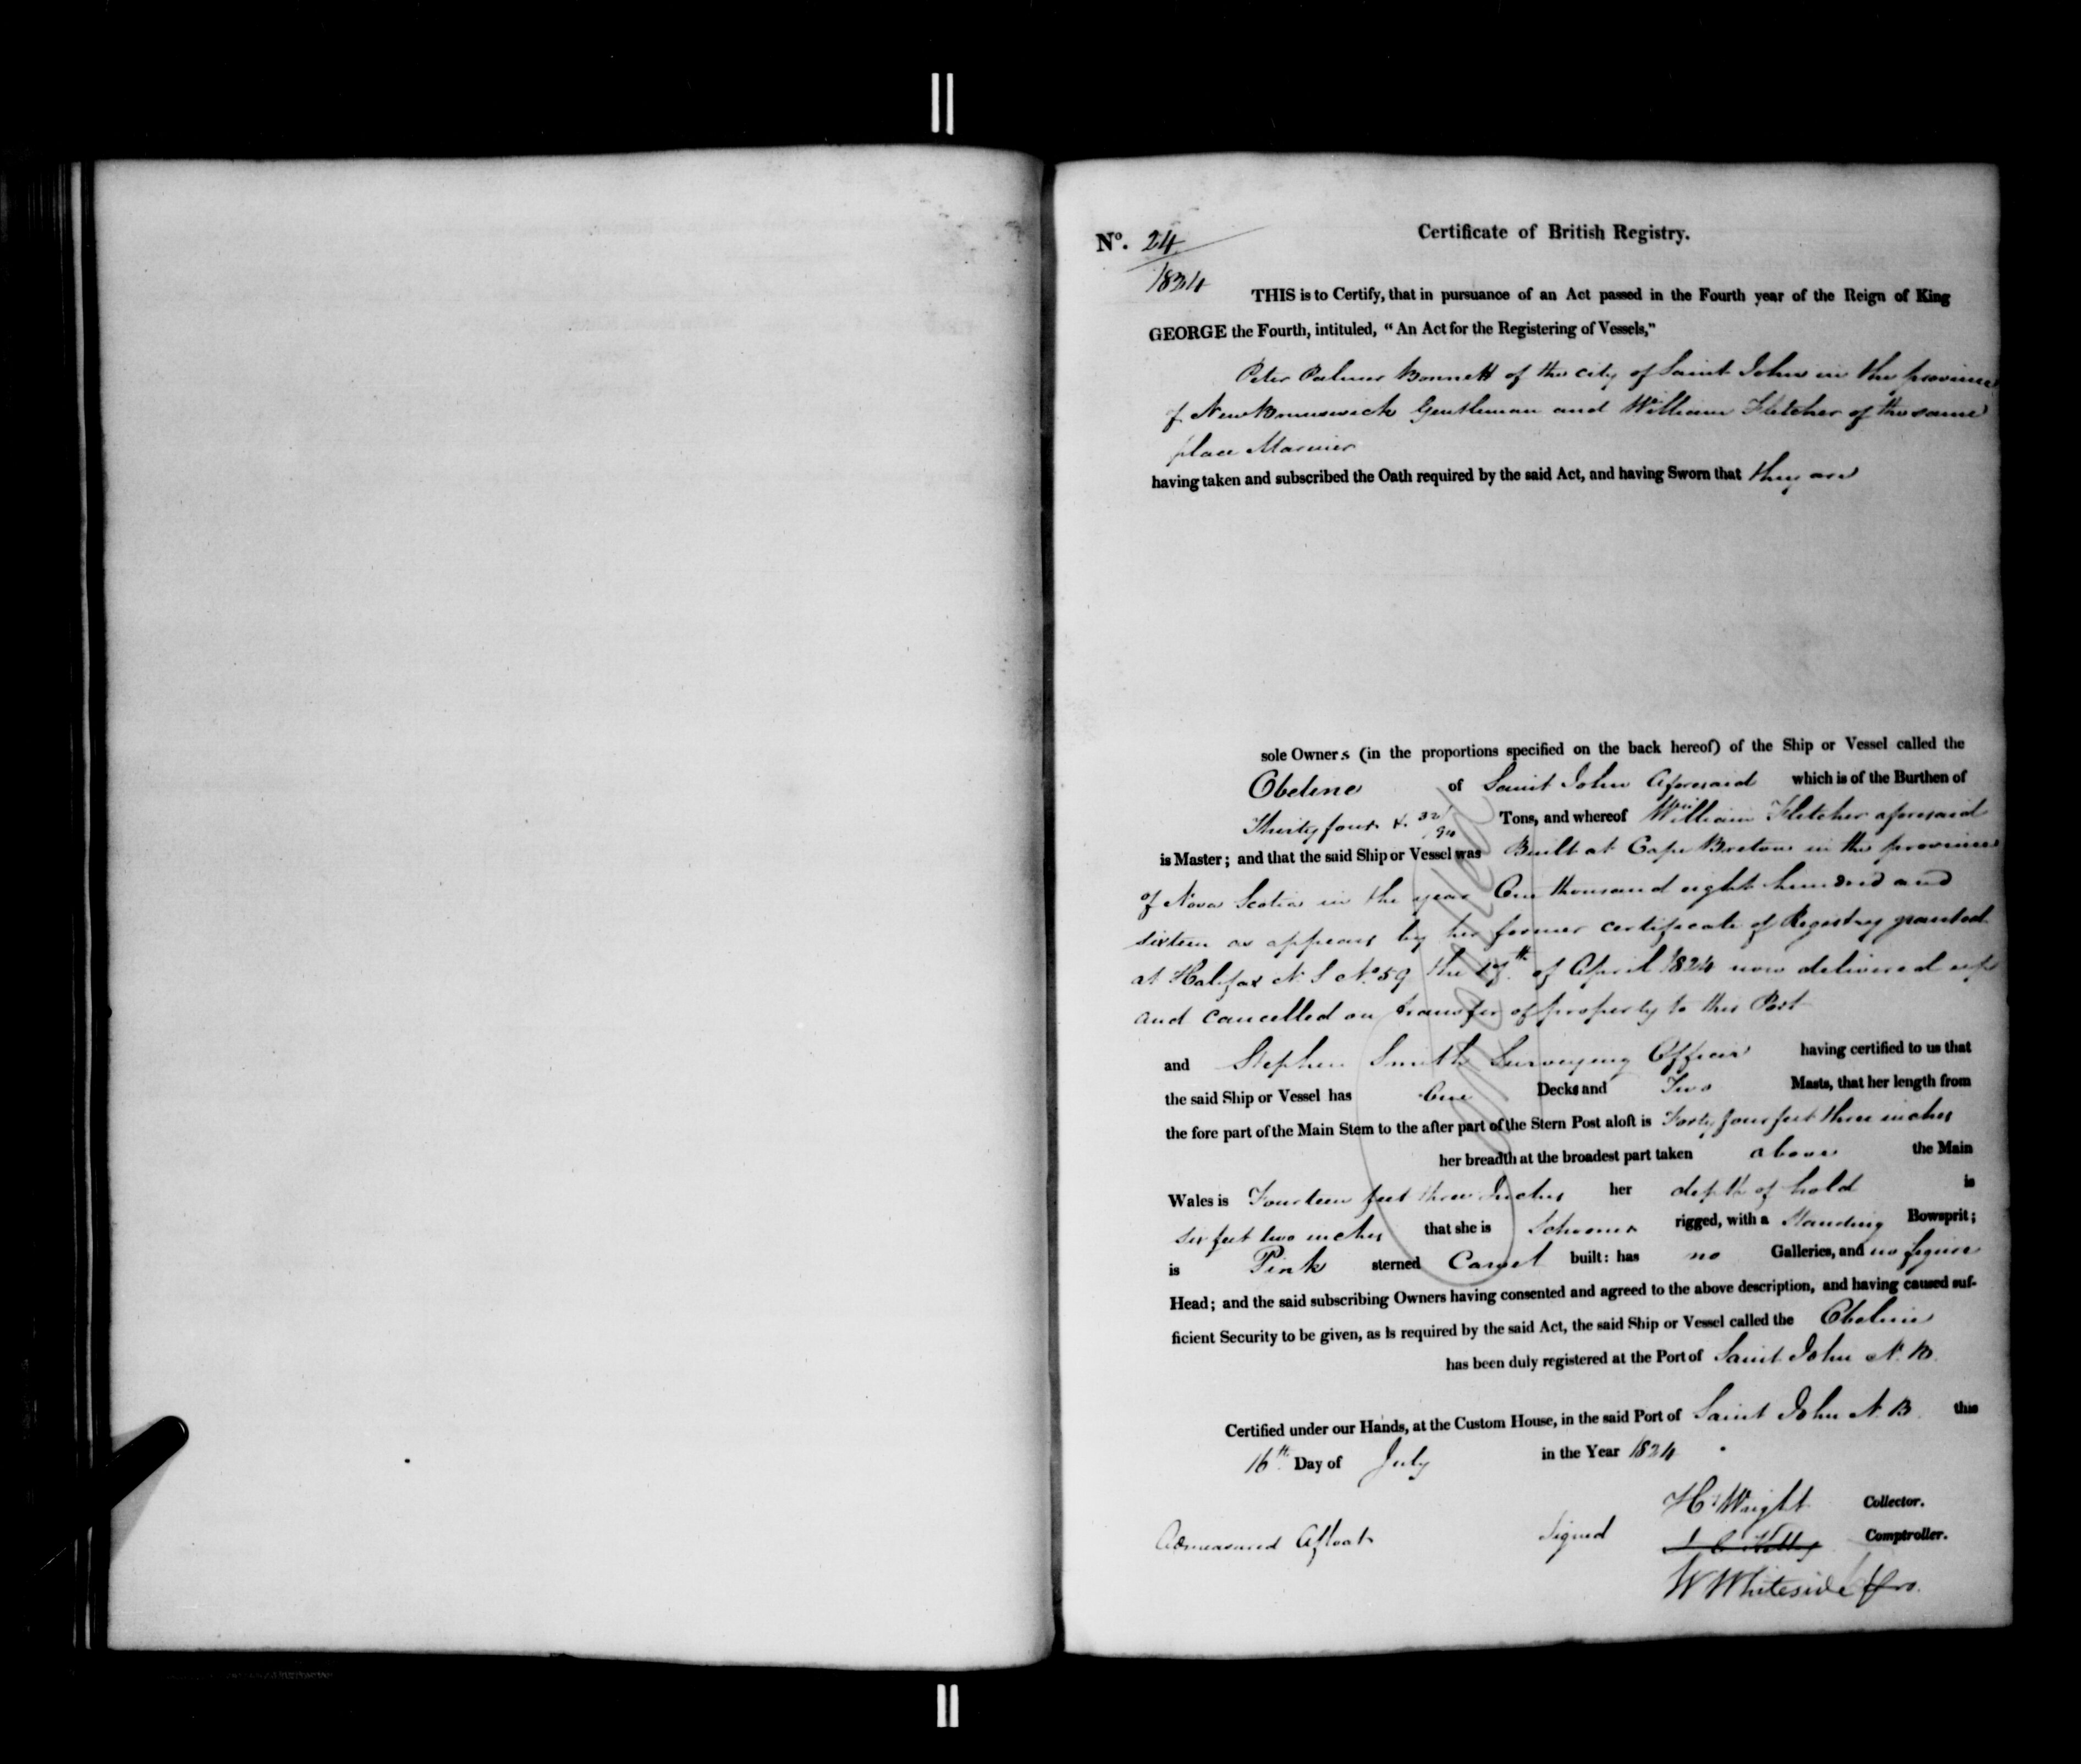 Nº. 24
1824
Certificate of British Registry.
THIS is to Certify, that in pursuance of an Act passed in the Fourth year of the Reign of King
GEORGE the Fourth, intituled, “An Act for the Registering of Vessels,”
Peter Palmer Bonnett of the city of Saint John in the province
of New Brunswick Gentleman and William Fletcher of the same
place Mariner
having taken and subscribed the Oath required by the said Act, and having Sworn that they are
sole Owners (in the proportions specified on the back hereof) of the Ship or Vessel called the
Obeline of Saint John Aforesaid which is of the Burthen of
Thirty four & 32/94 Tons, and whereof William Fletcher aforesaid
is Master; and that the said Ship or Vessel was Built at Cape Breton in the province
of Nova Scotia in the year One thousand eight hundred and
sixteen as appears by her former certificate of Registry granted
at Halifax N. S Nº 59 the th of April 1824 now delivered up
and cancelled on transfer of property to this Port
Cancelled
and Stephen Smith Surveying Officer having certified to us that
the said Ship or Vessel has One Decks and Two Masts, that her length from
the fore part of the Main Stem to the after part of the Stern Post aloft is Forty four feet three inches
her breadth at the broadest part taken above the Main
Wales is Fourteen feet three Inches her depth of hold is
six feet two inches that she is Schooner rigged, with a Standing Bowsprit;
is Pink sterned Carvel built: has no Galleries, and no figure
Head; and the said subscribing Owners having consented and agreed to the above description, and having caused suf-
ficient Security to be given, as is required by the said Act, the said Ship or Vessel called the Obeline
has been duly registered at the Port of Saint John N. B.
Certified under our Hands, at the Custom House, in the said Port of Saint John N. B. this
16th Day of July in the Year 1824
Hy Wright Collector.
Admeasured Afloat Signed Comptroller.
W Whiteside